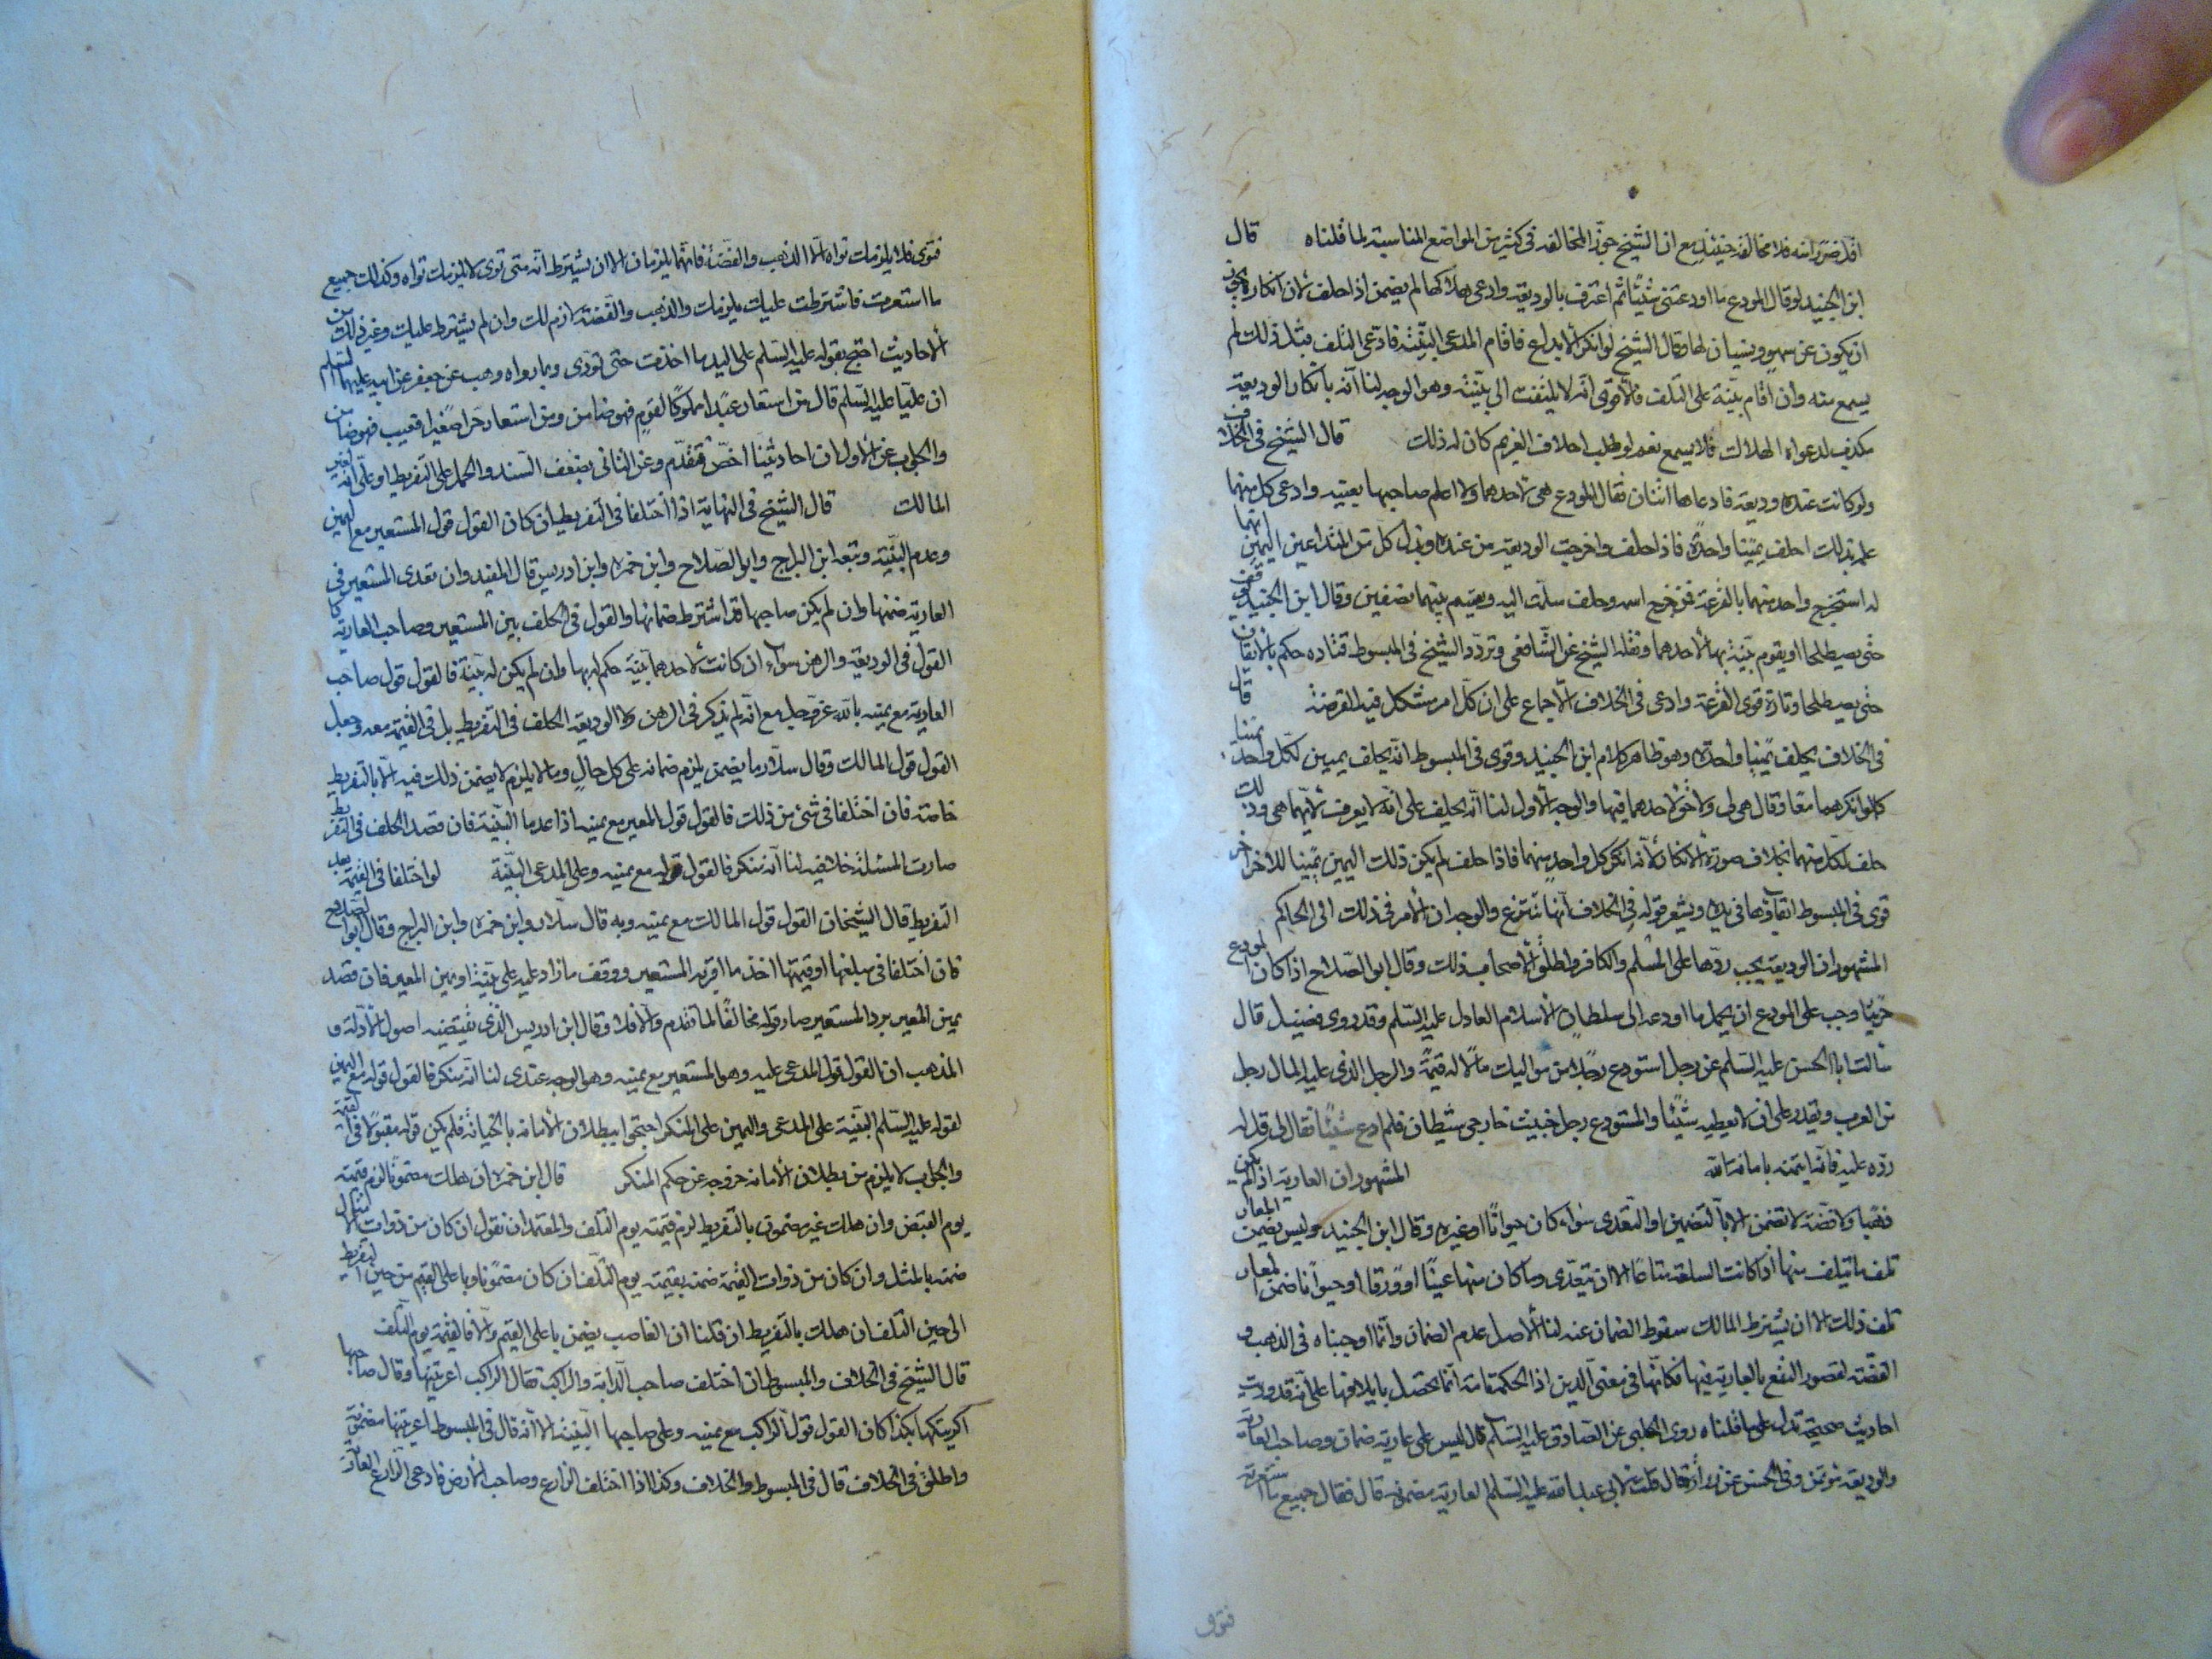 اقل ضررا منه فلا مخالفة حينئذ مع ان الشيخ جوّز المخالفة في كثير من المواضع المناسبة لما قلناه قال
ابن الجنيد لو قال المودع ما اودعتني شيئا ثم اعترف بالوديعة وادعى هلاكها لم يضمن اذا حلف لان انكاره يجوز
ان يكون عن سهو ونسيان لها وقال الشيخ لو انكر الايداع فاقام المدعي البينة فادعى التلف قبل ذلك لم
يسمع منه وان اقام بينة على التلف فالاقوى انه لا يلتفت الى بينته وهو الوجه لنا انه بانكار الوديعة
مكذب لدعواه الهلاك فلا يسمع نعم لو طلب احلاف الغريم كان له ذلك قال الشيخ في الخلاف
ولو كانت عنده وديعة فادعاها اثنان فقال المودع هي لاحدهما ولا اعلم صاحبها بعينه وادعى كل منهما
علمه بذلك احلف يمينا واحدة فاذا حلف واخرجت الوديعة من عنده وبذل كل من المتداعيين اليمين انها
له استخرج واحد منهما بالقرعة فمن خرج اسمه وحلف سلمت اليه ويقسم بينهما نصفين وقال ابن الجنيد
حتى يصطلحا او يقوم بينة بها لاحدهما ونقله الشيخ عن الشافعي وتردد الشيخ في المبسوط فتاره حكم بالايقاف
حتى يصطلحا وتارة قوى القرعة وادعى في الخلاف الاجماع على ان كل امر مشكل فيه القرعة قال
في الخلاف يحلف يمينا واحدة وهو ظاهر كلام ابن الجنيد وقوى في المبسوط انه يحلف يمينين لكل واحد يمينا
كما لو انكرهما معا وقال هي لي ولا حق لاحدهما فيها والوجه الاول لنا انه يحلف على انه لا يعرف لايهما هي وذلك
حلف لكل منهما بخلاف صورة الانكار لانه انكر كل واحد منهما فاذا حلف لم يكن ذلك اليمين يمينا للاخر
قوى في المبسوط ابقاؤها في يده ويشعر قوله في الخلاف انها تنتزع والوجه ان الامر في ذلك الى الحاكم
المشهور ان الوديعة يجب ردها على المسلم والكافر واطلق الاصحاب ذلك وقال ابو الصلاح اذا كان المودع
حربيا وجب على المودع ان يحمل ما اودعه الى سلطان الاسلام العادل عليه السلم وقد روى فضيل قال
سالت ابا الحسن عليه السلم عن رجل استودع رجلا من مواليك مالا له قيمة والرجل الذي عليه المال رجل
من العرب ويقدر على ان لا يعطيه شيئا والمستودع رجل خبيث خارجي شيطان فلم ادع شيئا فقال لي قل له
رده عليه فانه ائتمنه بامانة الله المشهور ان العارية اذا لم يكن
ذهبا ولا فضة لا تضمن الا بالتضمين او التعدي سواء كان حيوانا او غيره وقال ابن الجنيد وليس يضمن المعار
تلف ما تلف منها اذا كانت السلعة متاعا الا ان يتعدى وما كان منها عينا او ورقا او حيوانا ضمن المعار
تلف ذلك الا ان يشترط المالك سقوط الضمان عنه لنا الاصل عدم الضمان وانما اوجبناه في الذهب و
الفضة لقصور النفع بالعارية فيها فكانها في معنى الدين اذ الحكمة تامة انما تحصل باتلافها على انه قد وردت
احاديث صحيحة تدل على ما قلناه روى الحلبي عن الصادق عليه السلم قال ليس على عارية ضمان وصاحب العارية
والوديعة مؤتمن وفي الحسن عن زرارة قال قلت لابي عبد الله عليه السلم العارية مضمونة قال فقال جميع ما استعرته
فتوى
فتوى فلا يلزمك تواه الا الذهب والفضة فانهما يلزمان الا ان يشترط انه متى توى لا يلزمك تواه وكذلك جميع
ما استعرت فاشترطت عليك يلزمك والذهب والفضة لازم لك وان لم يشترط عليك وغير ذلك من
الاحاديث احتج بقوله عليه السلم على اليد ما اخذت حتى تؤدى وبما رواه وهب عن جعفر عن ابيه عليهما السلم
ان عليا عليه السلم قال من استعار عبدا مملوكا لقوم فهو ضامن ومن استعار حرا صغيرا فعيب فهو ضامن
والجواب عن الاول ان احاديثنا اخص فتقدم وعن الثاني بضعف السند والحمل على التفريط او على انه لغير
المالك قال الشيخ في النهاية اذا اختلفا في التفريط ان كان القول قول المستعير مع اليمين
وعدم البينة وتبعه ابن البراج وابو الصلاح وابن حمزه وابن ادريس قال المفيد وان تعدى المستعير في
العارية ضمنها وان لم يكن صاحبها قد اشترط ضمانها والقول في الخلف بين المستعير وصاحب العارية كا
القول في الوديعة والرهن سواء ان كانت لاحدهما بينة حكم له بها وان لم يكن له بينة فالقول قول صاحب
العارية مع يمينه بالله عز وجل مع انه لم يذكر في الرهن ولا الوديعة الحلف في التفريط بل في القيمة معه وجعل
القول قول المالك وقال سلار ما يضمن يلزم ضمانه على كل حال وما لا يلزم لا يضمن ذلك فيه الا بالتفريط
خاصة فان اختلفا في شيء من ذلك فالقول قول المعير مع يمينه اذا عدما البينة فان قصد الحلف في التفريط
صارت المسئلة خلافية لنا انه منكر فالقول قوله مع يمينه وعلى المدعي البينة لو اختلفا في القيمة بعد
التفريط قال الشيخان القول قول المالك مع يمينه وبه قال سلار وابن حمزه وابن البراج وقال ابو الصلاح
فان اختلفا في مبلغها او قيمتها اخذ ما اقر به المستعير ووقف ما زاد عليه على بينة او يمين المعير فان قصد
يمين المعير برد المستعير صار قوله مخالفا لما تقدم والا فلا وقال ابن ادريس الذي تقتضيه اصول الادلة و
المذهب ان القول قول المدعى عليه وهو المستعير مع يمينه وهو الوجه عندي لنا انه منكر فالقول قوله مع اليمين
لقوله عليه السلم البينة على المدعي واليمين على المنكر احتجوا ببطلان الامانة بالخيانة فلم يكن قوله مقبولا في القيمة
والجواب لا يلزم من بطلان الامانة خروجه عن حكم المنكر قال ابن حمزه ان هلك مضمونا لزم قيمته
يوم القبض وان هلك غير مضمون بالتفريط لزم قيمته يوم التلف والمعتمد ان نقول ان كان من ذوات الامثال
ضمنه بالمثل وان كان من ذوات القيمة ضمنه بقيمته يوم التلف ان كان مضمونا وباعلى القيم من حين التفريط
الى حين التلف ان هلك بالتفريط ان قلنا ان الغاصب يضمن باعلى القيم والا فالقيمة يوم التلف
قال الشيخ في الخلاف والمبسوط ان اختلف صاحب الدابة والراكب فقال الراكب اعرتنيها وقال صاحبها
اكريتكها بكذا كان القول قول الراكب مع يمينه وعلى صاحبها البينة الا انه قال في المبسوط اعرتنيها مضمونة
واطلق في الخلاف قال في المبسوط والخلاف وكذا اذا اختلف الزارع وصاحب الارض فادعى الزارع العارية